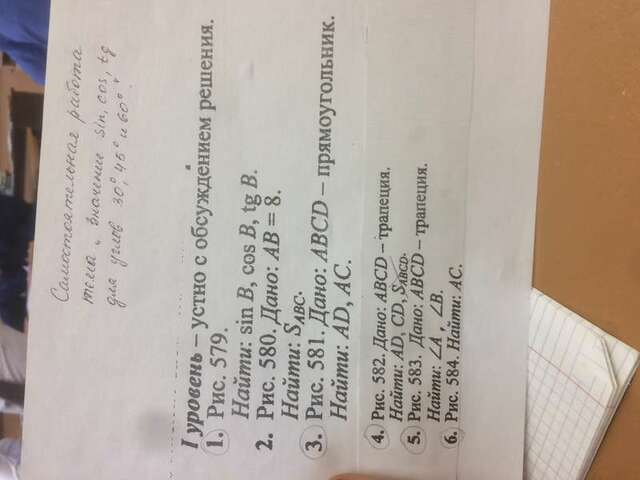 Самостоятельная работа
тема „ значение sin, cos, tg
для углов 30°, 45° и 60°."
I уровень – устно с обсуждением решения.
1. Рис. 579.
Найти: sin B, cos B, tg B.
2. Рис. 580. Дано: AB = 8.
Найти: SABC.
3. Рис. 581. Дано: ABCD – прямоугольник.
Найти: AD, AC.
4. Рис. 582. Дано: ABCD – трапеция.
Найти: AD, CD, SABCD.
5. Рис. 583. Дано: ABCD – трапеция.
Найти: ∠A , ∠B.
6. Рис. 584. Найти: AC.